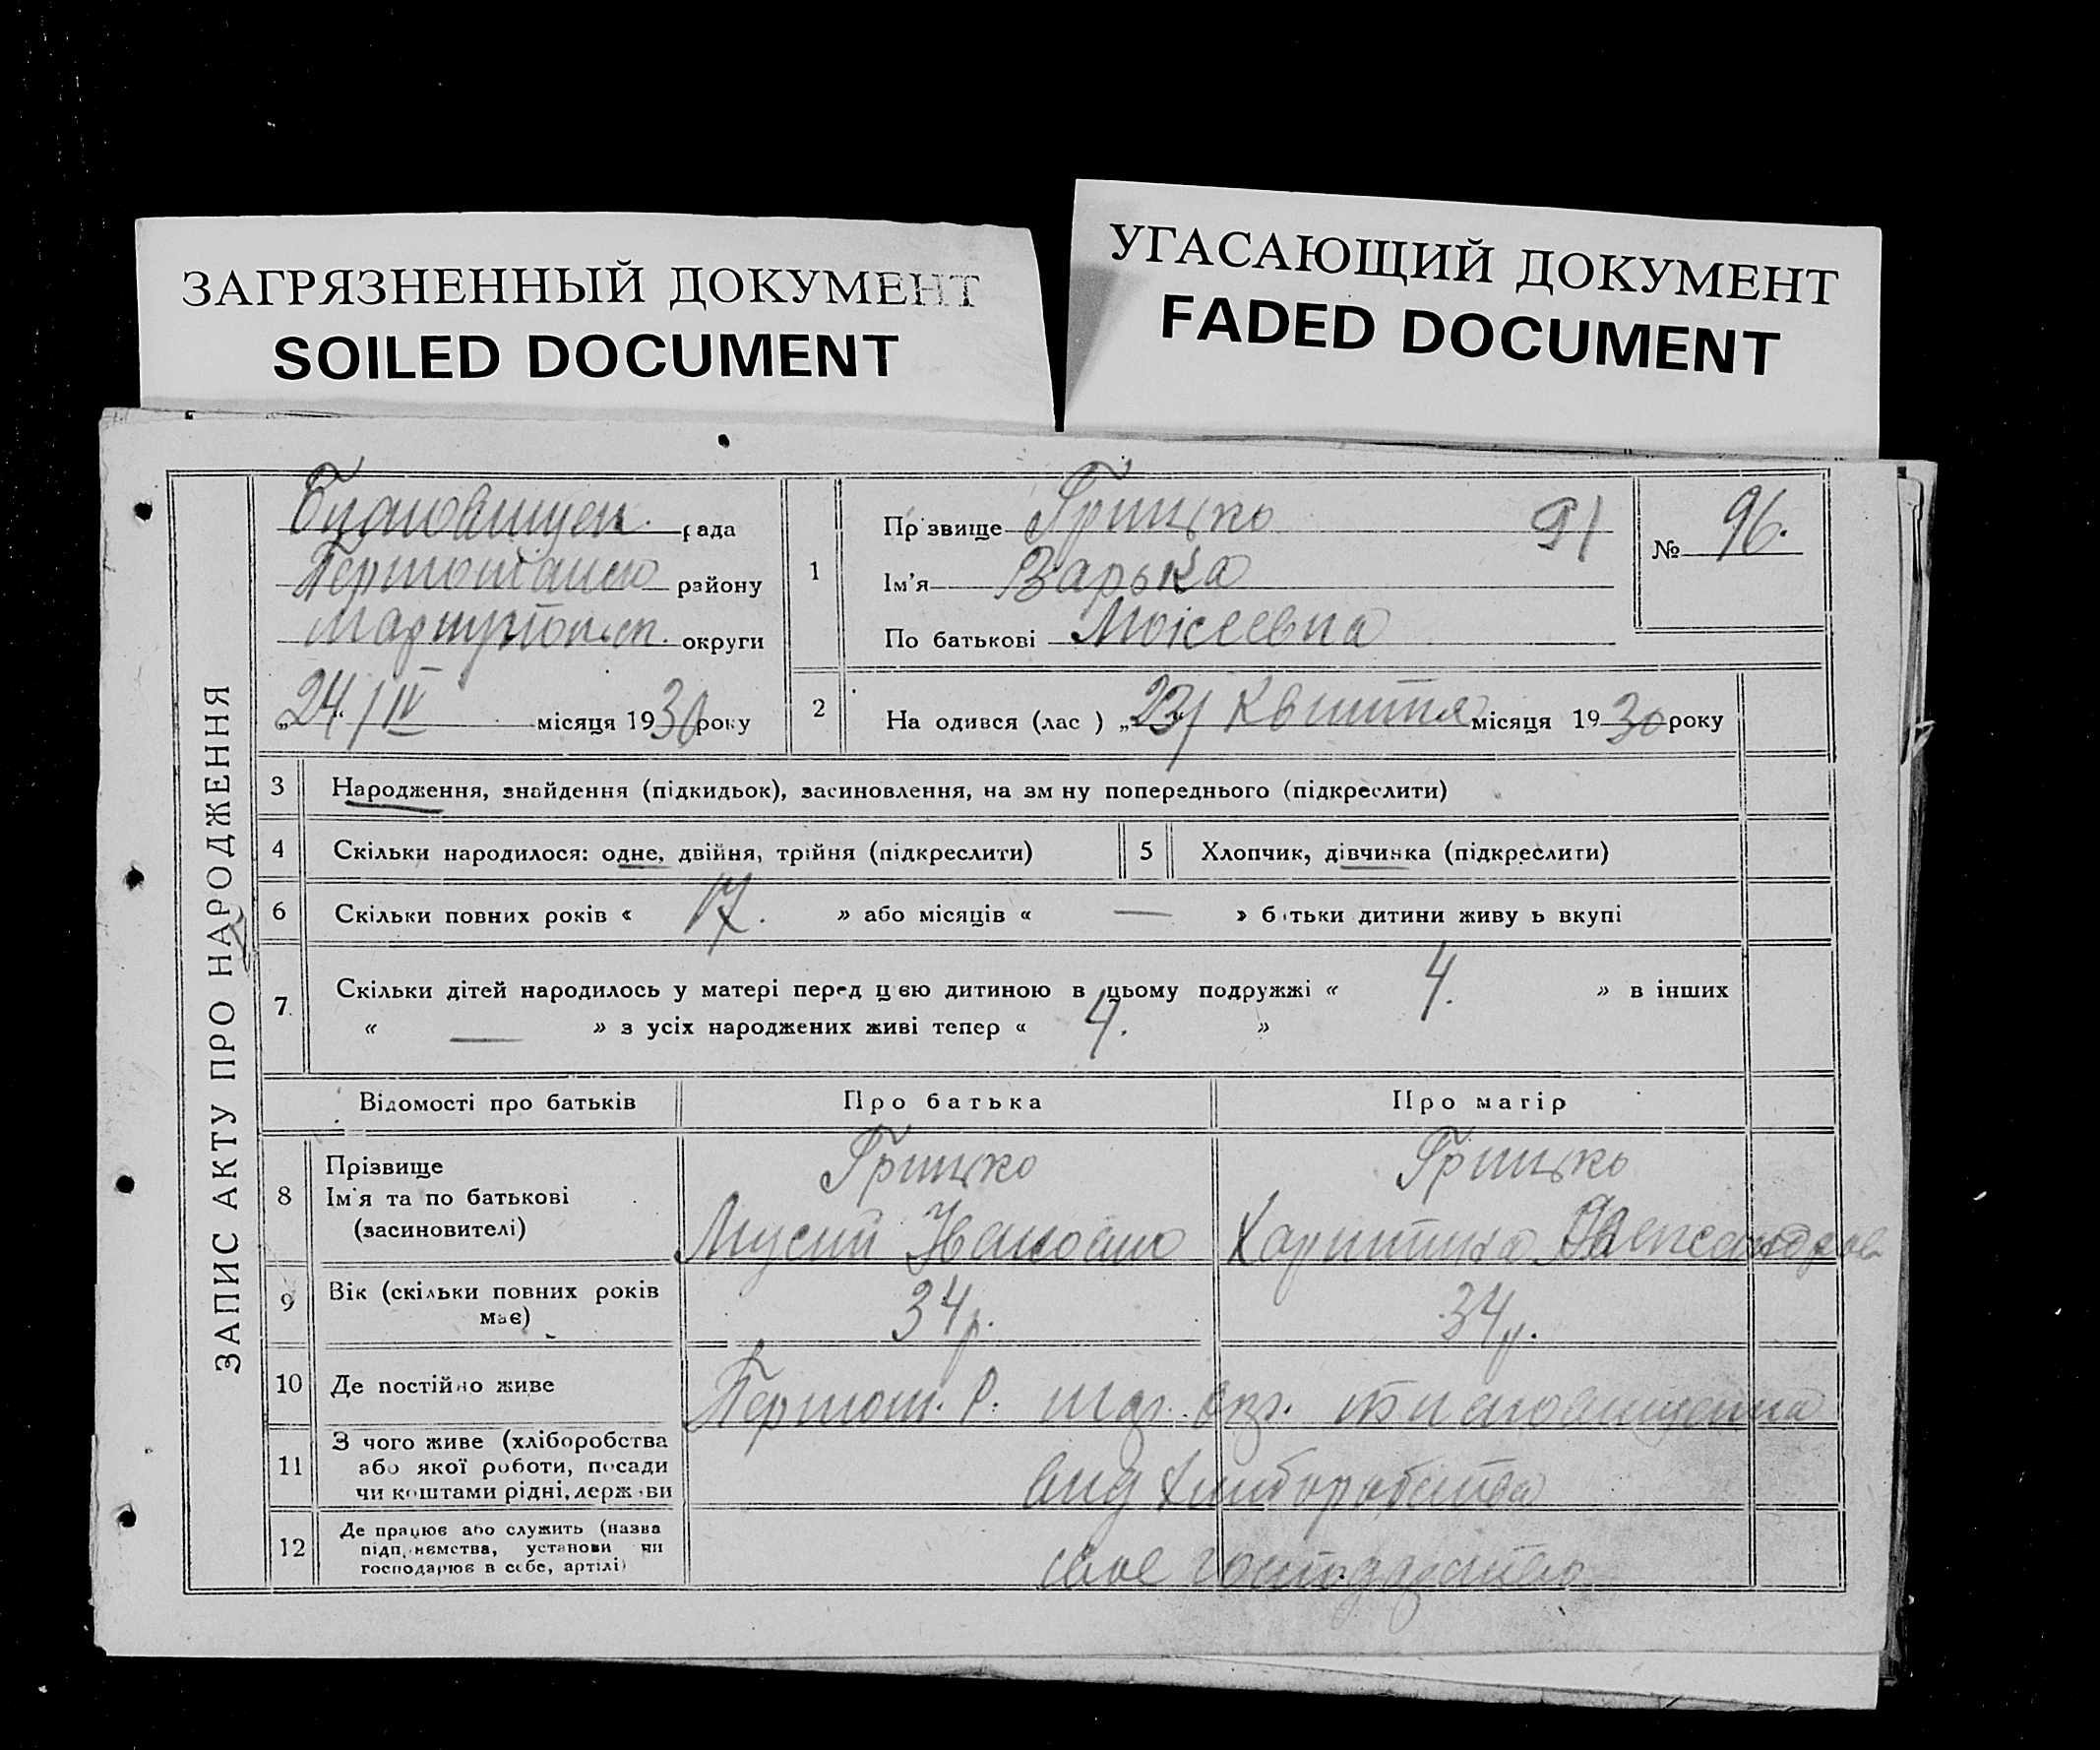 ЗАГРЯЗНЕННЫЙ ДОКУМЕНТ
SOILED DOCUMENT
УГАСАЮЩИЙ ДОКУМЕНТ
FADED DOCUMENT
ЗАПИС АКТУ ПРО НАРОДЖЕННЯ
рада
району
округи
„24“/IV місяця 1930 року
1
Прізвище Грицько 91
Ім'я Варька
По батькові Мойсеевна
№ 96.
2 На одився (лас ) „23“ Квитня місяця 1930 року
3 Народження, знайдення (підкидьок), засиновлення, на зм ну попереднього (підкреслити)
4 Скільки народилося: одне, двійня, трійня (підкреслити) 5 Хлопчик, дівчинка (підкреслити)
6 Скільки повних років « 17. » або місяців « — » б тьки дитини живу ь вкупі
7. Скільки дітей народилось у матері перед цею дитиною в цьому подружжі « 4. » в інших
« — » з усіх народжених живі тепер « 4. »
Відомості про батьків Про батька Про матір
8 Прізвище Грицько Грицько
Ім'я та по батькові
(засиновителі) Мусий Иванович Харитина
9 Вік (скільки повних років має) 34 р. 34 р.
10 Де постійно живе Першот. Р. Мар. Окр.
11 З чого живе (хліборобства
або якої роботи, посади
чи коштами рідні, держ ви
вид хлиборобства
12 Де працює або служить (назва
підп немства, установи чи
господарює в себе, артілі)
свое господарство